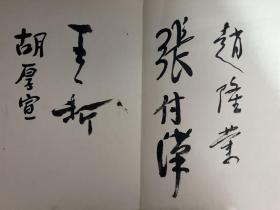 趙隆業
張付漢
王昕
胡厚宣